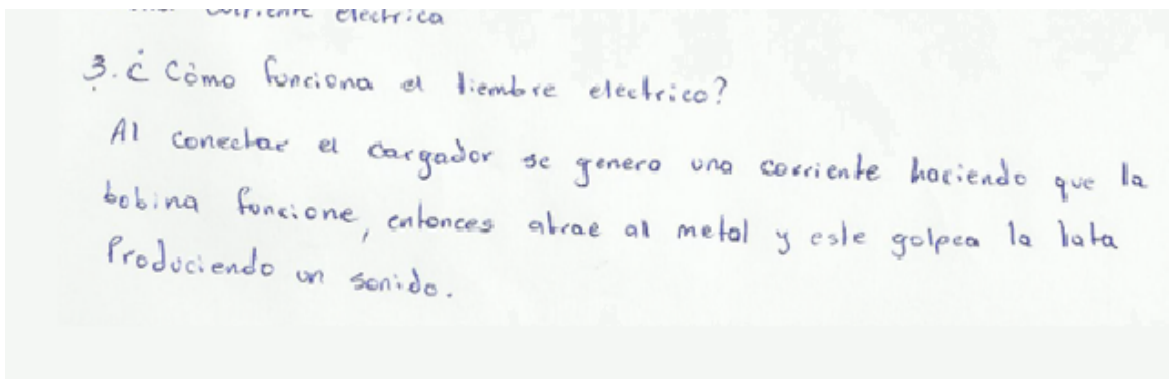 corriente electrica
3. ¿ Cómo funciona el tiembre electrico?
Al conectar el cargador se genera una corriente haciendo que la
bobina funcione, entonces atrae al metal y este golpea la lata
Produciendo un sonido.